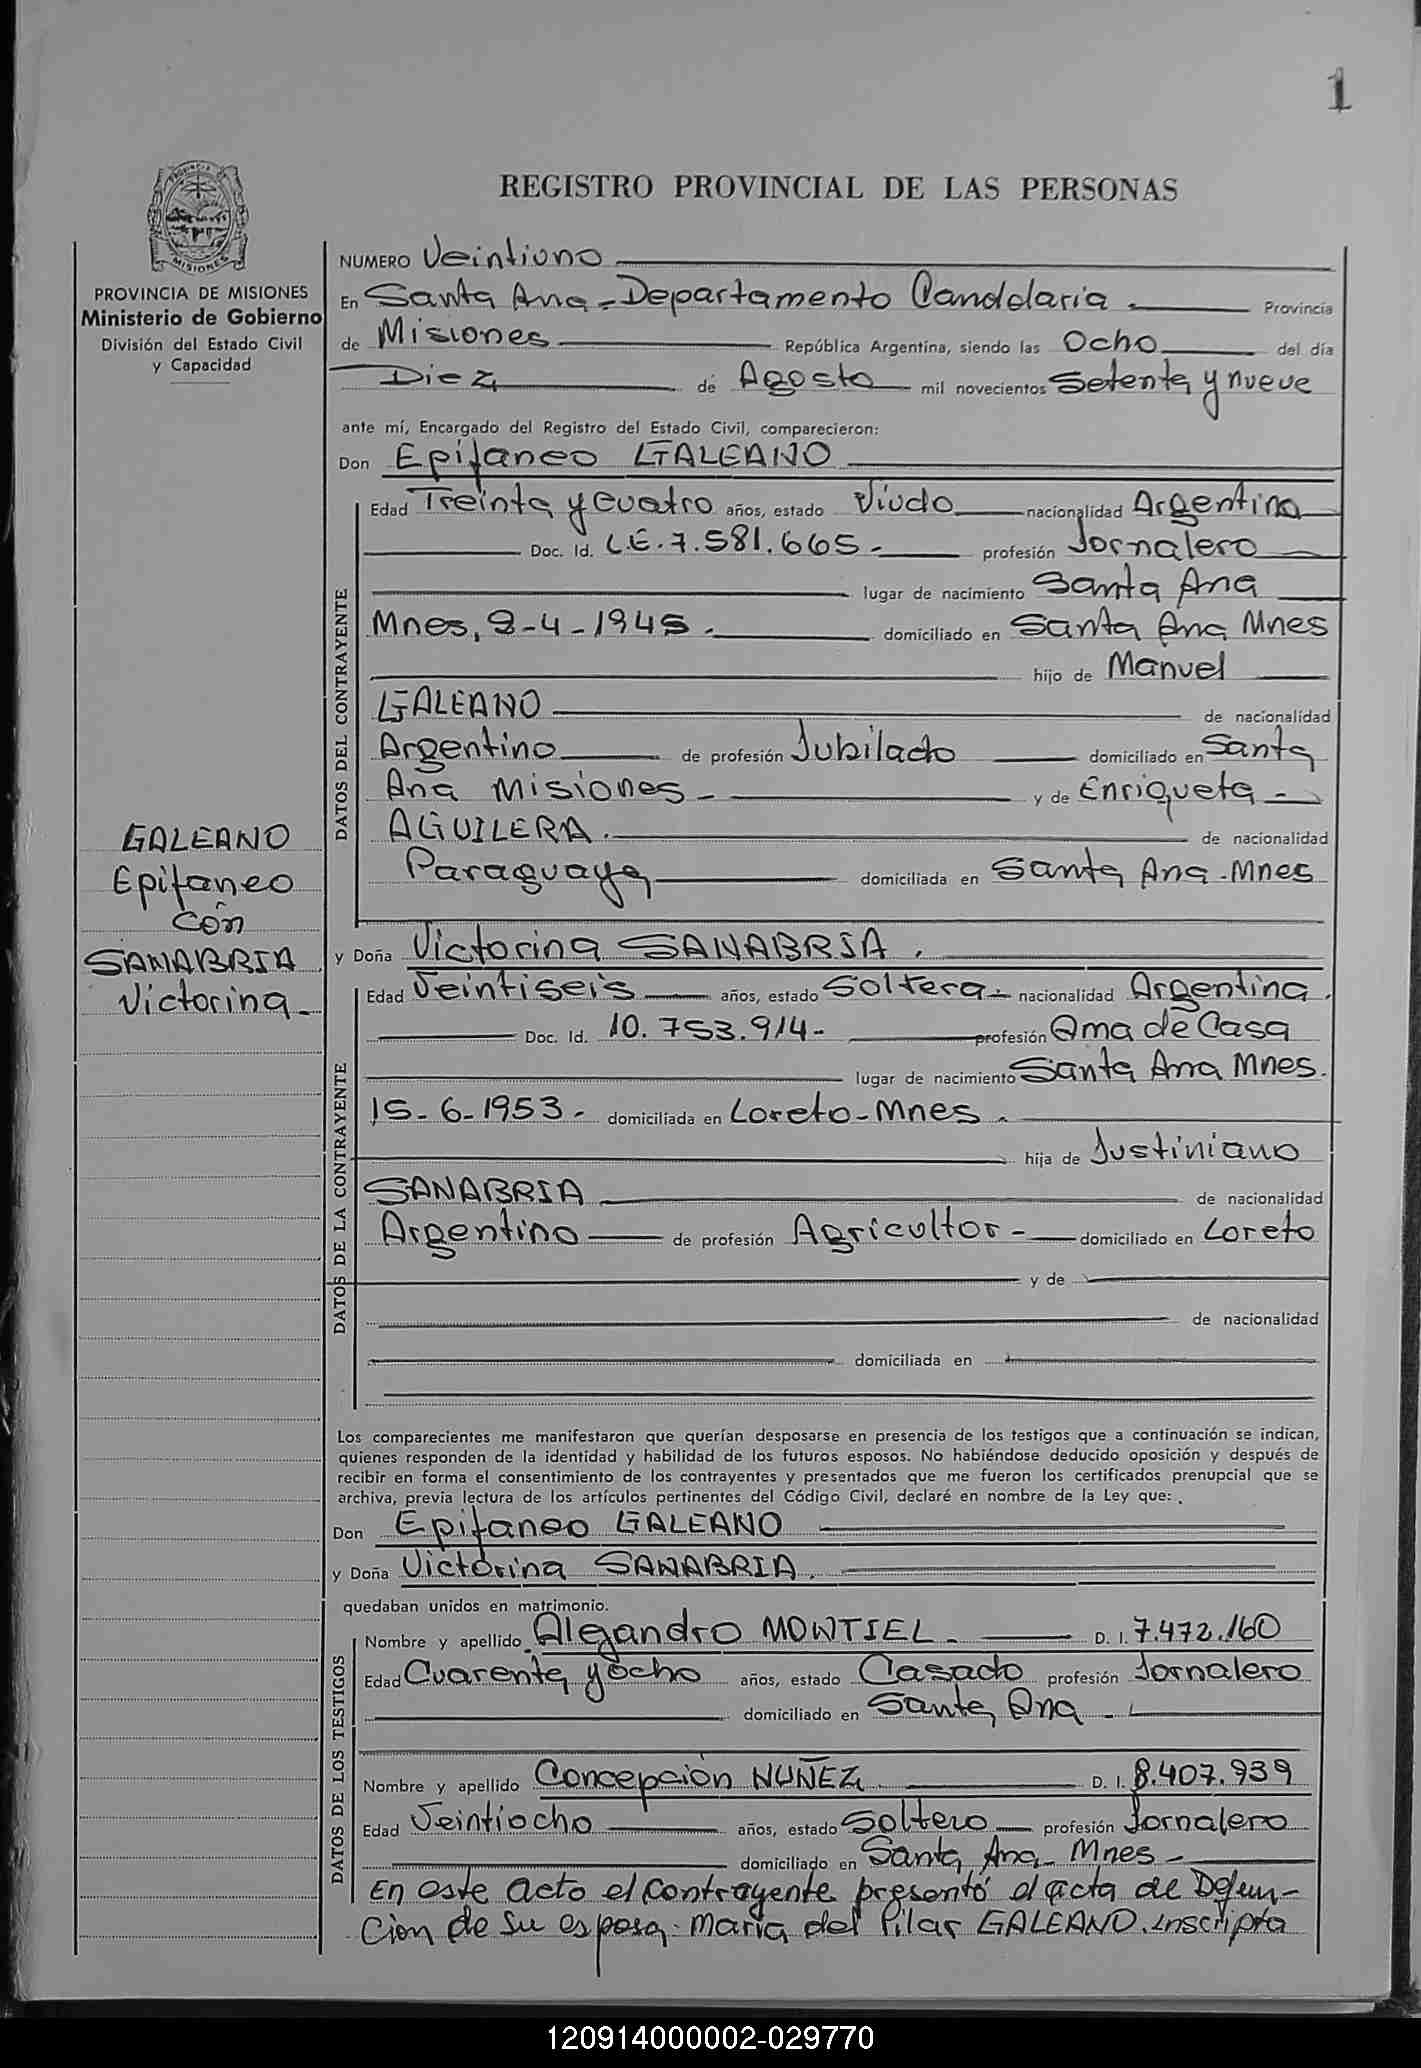 1
REGISTRO PROVINCIAL DE LAS PERSONAS
PROVINCIA DE MISIONES
Ministerio de Gobierno
División del Estado Civil
y Capacidad
NUMERO Veintiuno
En Santa Ana - Departamento Candelaria - Provincia
de Misiones República Argentina, siendo las Ocho del día
Diez de Agosto mil novecientos Setenta y nueve
ante mí, Encargado del Registro del Estado Civil, comparecieron:
Don Epifaneo GALEANO
DATOS DEL CONTRAYENTE
Edad Treinta y cuatro años, estado Viudo nacionalidad Argentina
Doc. Id. L.E. 7.581.665 - profesión Jornalero
lugar de nacimiento Santa Ana
Mnes, 8-4-1945. domiciliado en Santa Ana Mnes
hijo de Manuel
GALEANO de nacionalidad
Argentino de profesión Jubilado domiciliado en Santa
Ana Misiones - y de Enriqueta -
AGUILERA. de nacionalidad
Paraguaya domiciliada en Santa Ana - Mnes
GALEANO
Epifaneo
con
SANABRIA
Victorina -
y Doña Victorina SANABRIA.
DATOS DE LA CONTRAYENTE
Edad Veintiseis años, estado Soltera - nacionalidad Argentina.
Doc. Id. 10.753.914 - profesión Ama de Casa
lugar de nacimiento Santa Ana Mnes.
15-6-1953 - domiciliada en Loreto - Mnes -
hija de Justiniano
SANABRIA de nacionalidad
Argentino de profesión Agricultor - domiciliado en Loreto
y de
de nacionalidad
domiciliada en
Los comparecientes me manifestaron que querían desposarse en presencia de los testigos que a continuación se indican,
quienes responden de la identidad y habilidad de los futuros esposos. No habiéndose deducido oposición y después de
recibir en forma el consentimiento de los contrayentes y presentados que me fueron los certificados prenupcial que se
archiva, previa lectura de los artículos pertinentes del Código Civil, declaré en nombre de la Ley que:
Don Epifaneo GALEANO
y Doña Victorina SANABRIA.
quedaban unidos en matrimonio.
DATOS DE LOS TESTIGOS
Nombre y apellido Alejandro MONTIEL - D. I. 7.472.160
Edad Cuarenta y ocho años, estado Casado profesión Jornalero
domiciliado en Santa Ana -
Nombre y apellido Concepción NUÑEZ D. I. 8.407.939
Edad Veintiocho años, estado Soltero profesión Jornalero
domiciliado en Santa Ana - Mnes -
En este acto el contrayente presentó el acta de Defun-
cion de su esposa. Maria del Pilar GALEANO. inscripta
120914000002-029770